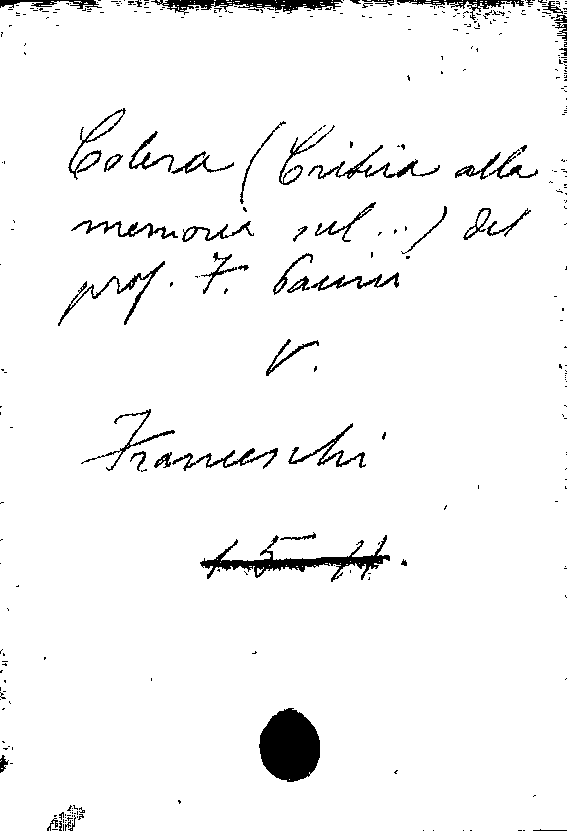 Colera (Critica alla
memoria sul...) del
prof. F. Pacini
V.
Franceschi
1 5 11.